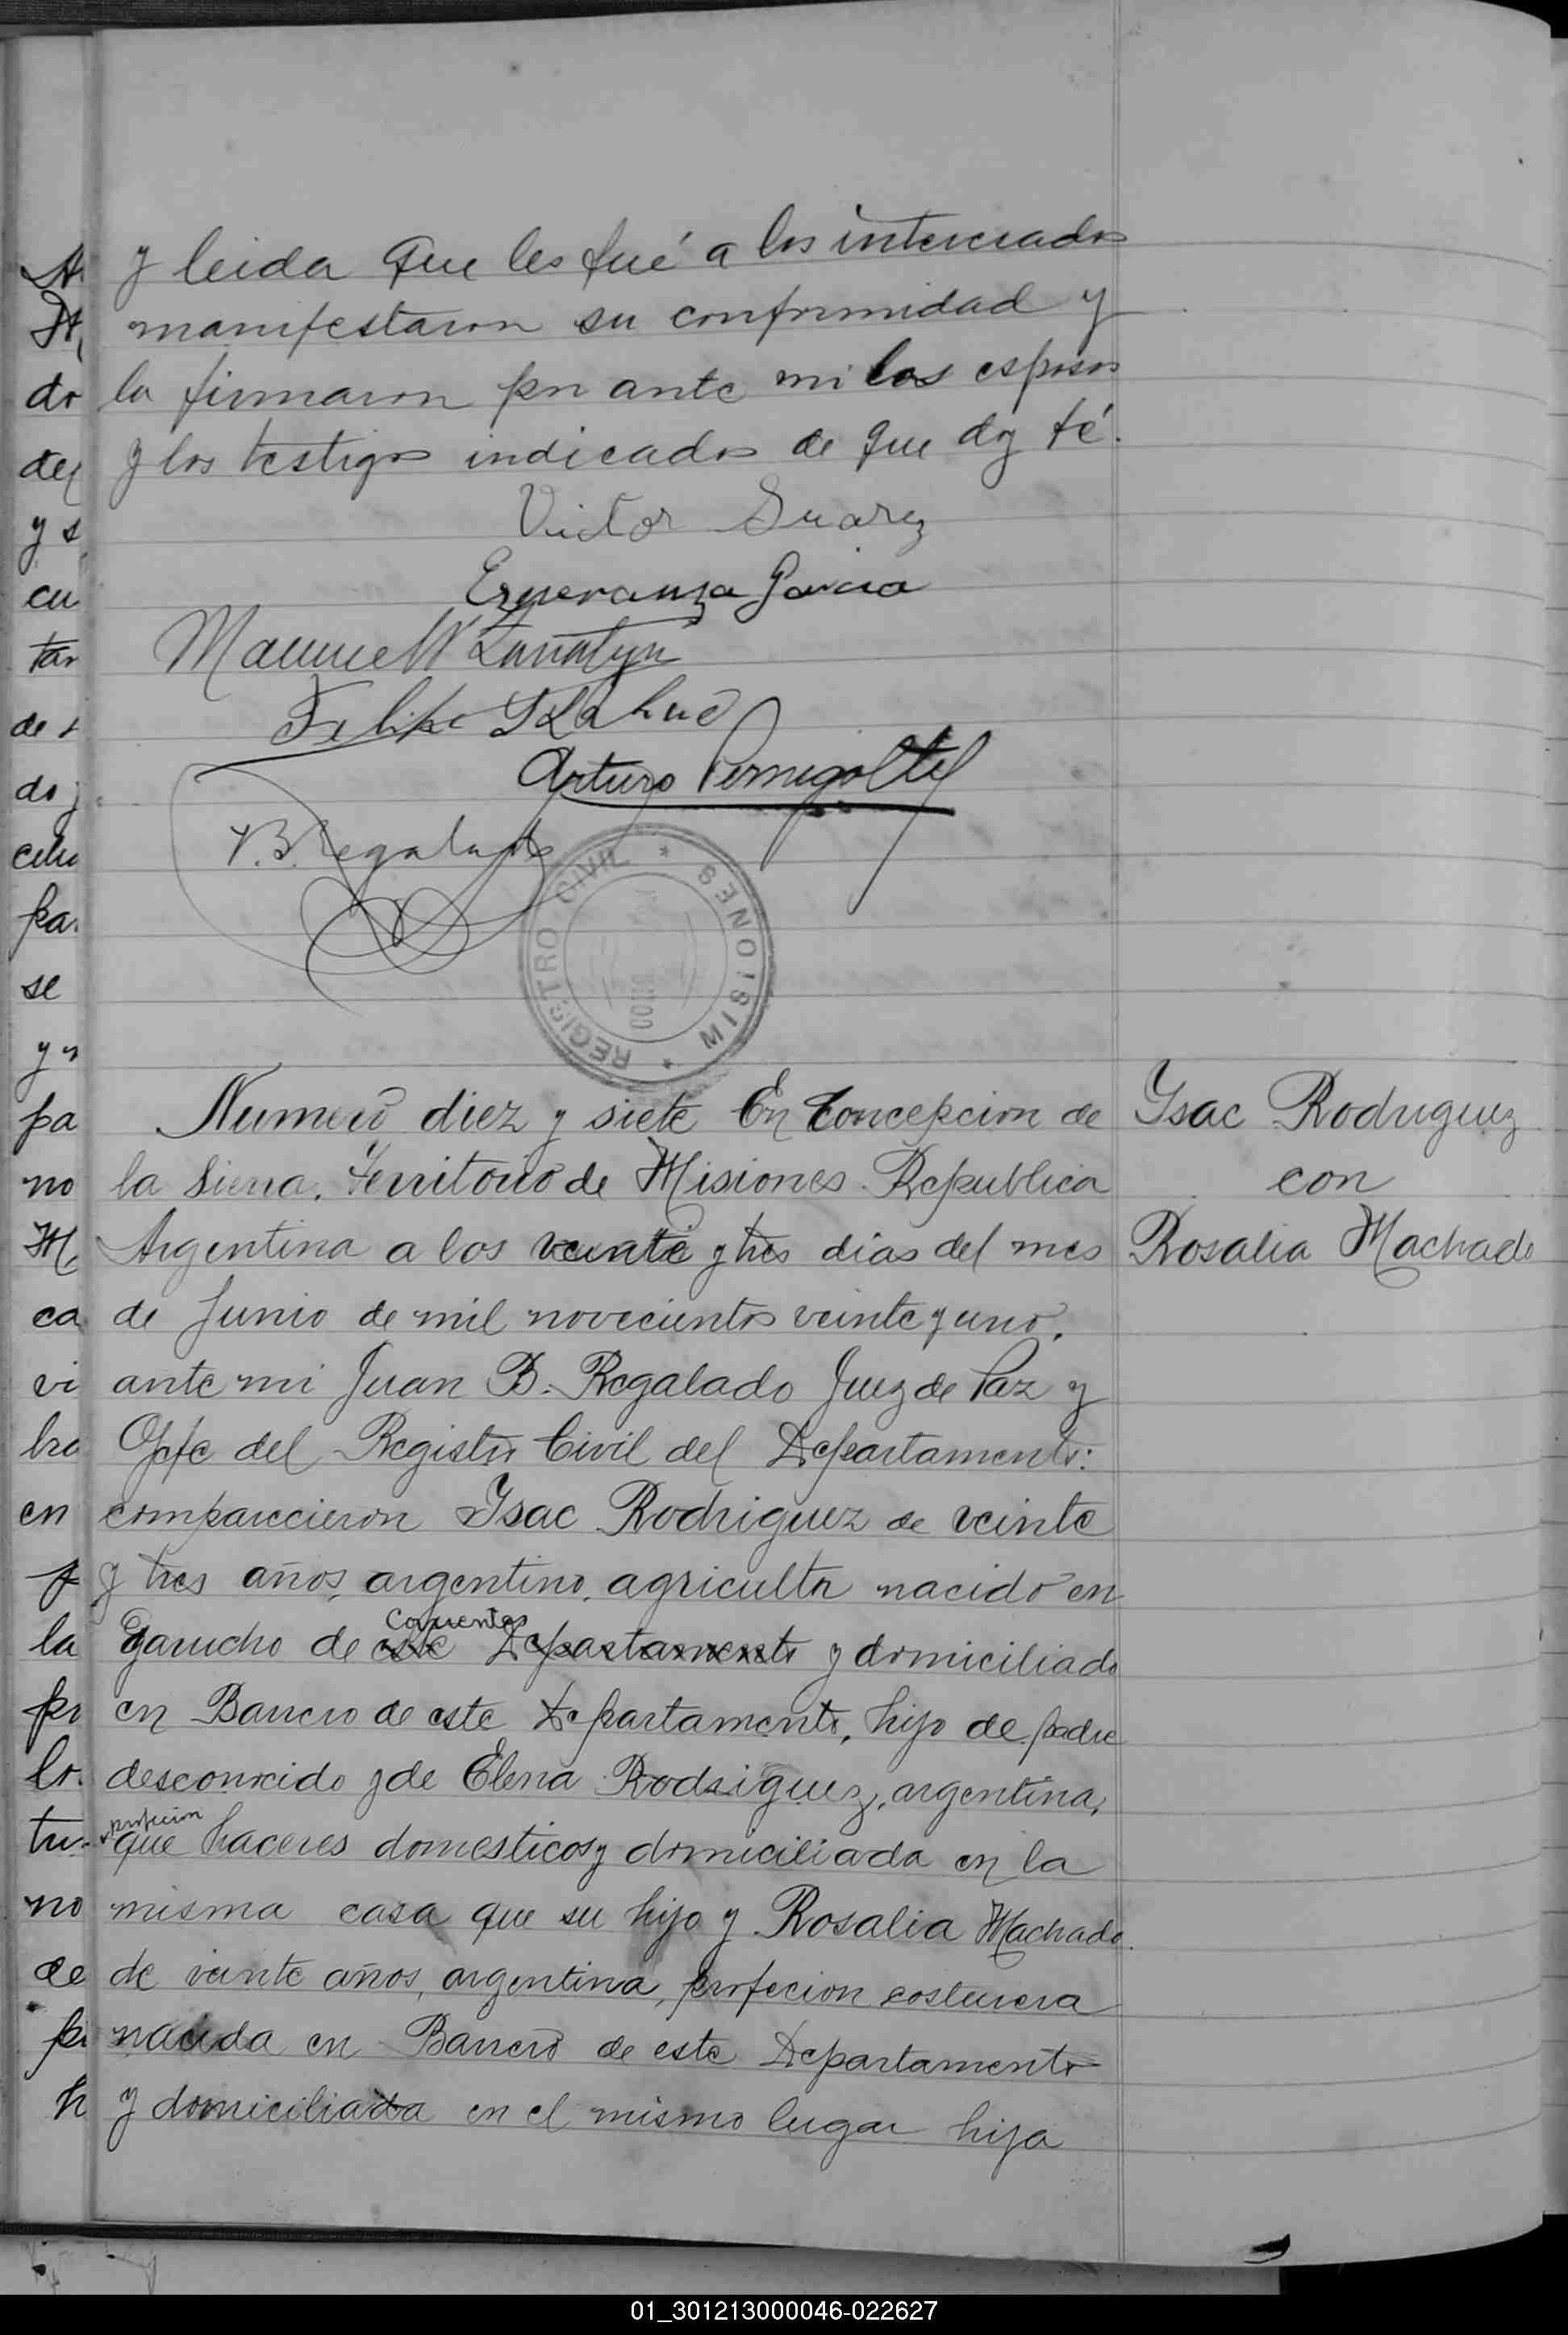 y leida que les fué a los interesados
manifestaron su conformidad y
la firmaron por ante mi los esposos
y los testigos indicados de que doy fé.
Victor Suarez
Esperanza Garcia
Felipe
Arturo
B. Regalado
REGISTRO CIVIL * MISIONES *
Numero diez y siete En Concepcion de
la Sierra, Territorio de Misiones Republica
Argentina a los veinte y tres dias del mes
de Junio de mil novecientos veinte y uno,
ante mi Juan B. Regalado Juez de Paz y
Gefe del Registro Civil del Departamento:
comparecieron Ysac Rodriguez de veinte
y tres años, argentino, agricultor nacido en
Corrientes
Garucho de este Departamento y domiciliado
en Barrero de este Departamento, hijo de padre
desconocido y de Elena Rodriguez, argentina,
profecion
que haceres domesticos y domiciliada en la
misma casa que su hijo y Rosalia Machado
de veinte años, argentina, profecion costurera
nacida en Barrero de este Departamento
y domiciliada en el mismo lugar hija
Ysac Rodriguez
con
Rosalia Machado
do
de
y s
cu
tar
de
do
pa
se
pa
no
ca
vi
en
la
no
de
01_301213000046-022627